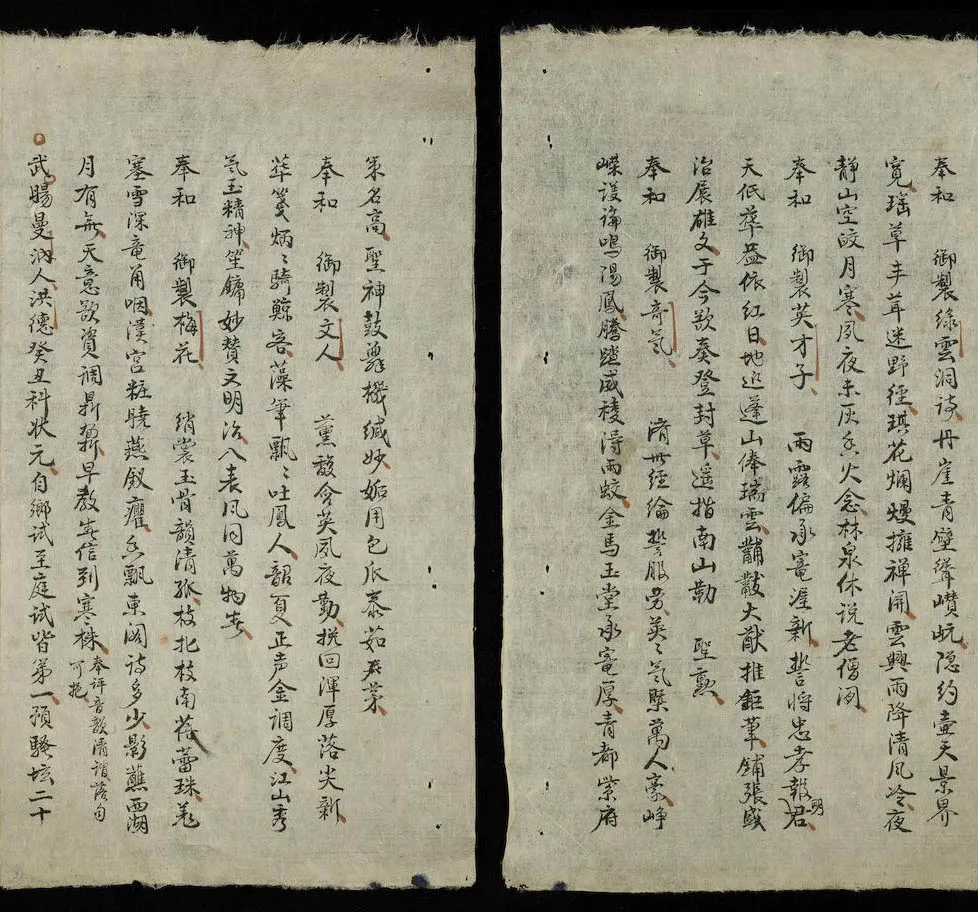 奉和 御製綠雲洞詩 丹崖青壁聳巑岏隐約壺天景界
寬瑶草丰茸迷野徑琪花爛熳擁禅関雲興雨降清风冷夜
静山空皎月寒夙夜未灰香火念林泉休说老僧閑
奉和 御製英才子 雨露偏承寵渥新誓將忠孝報明君
天低華盖依紅日地近蓬山俸瑞雲黼黻大猷推鉅筆鋪張盛
治展雄文于今欲奏登封草遥指南山勒 聖勲
奉和 御製奇氣 濟世經綸誓服劳英〻氣槩萬人豪崢
嶸謨論鳴陽鳳騰踏威稜得雨蛟金馬玉堂承寵厚青都紫府
策名高聖神鼓舞機緘妙姤用包瓜泰茹茅
奉和 御製文人 薰馥含英夙夜勤挽回渾厚落尖新
華箋炳〻騎鯨客藻筆飄〻吐鳳人韶夏正声金調度江山秀
氣玉精神笙鏞妙賛文明治八表凡同萬物春
奉和 御製梅花 綃裳玉骨韻清孤枝北枝南蓓蕾珠羗
塞雪深竜角咽漢宮粧曉燕釵癯香飄東阁詩多少影蘸西湖
月有無天意欲資調鼎鼐早教春信到寒株 奉評音韻清謂落句可挹
武暘曼㳊人洪德癸丑科状元自鄉試至庭試皆第一預騷坛二十